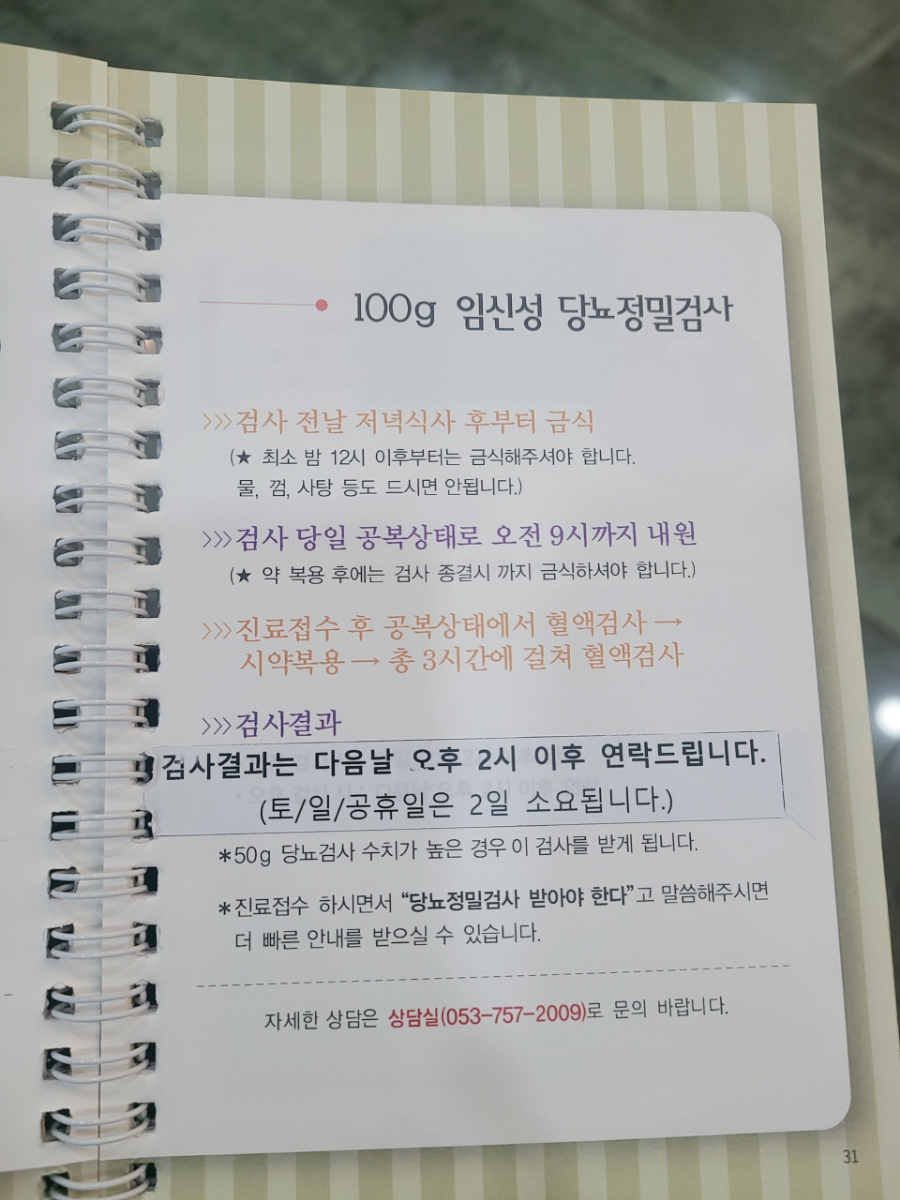 100g 임신성 당뇨정밀검사
>>>검사 전날 저녁식사 후부터 금식
(★ 최소 밤 12시 이후부터는 금식해주셔야 합니다.
물, 껌, 사탕 등도 드시면 안됩니다.)
>>>검사 당일 공복상태로 오전 9시까지 내원
(★ 약 복용 후에는 검사 종결시 까지 금식하셔야 합니다.)
>>>진료접수 후 공복상태에서 혈액검사 →
시약복용 → 총 3시간에 걸쳐 혈액검사
>>>검사결과
검사결과는 다음날 오후 2시 이후 연락드립니다.
(토/일/공휴일은 2일 소요됩니다.)
*50g 당뇨검사 수치가 높은 경우 이 검사를 받게 됩니다.
*진료접수 하시면서 “당뇨정밀검사 받아야 한다”고 말씀해주시면
더 빠른 안내를 받으실 수 있습니다.
자세한 상담은 상담실(053-757-2009)로 문의 바랍니다.
31